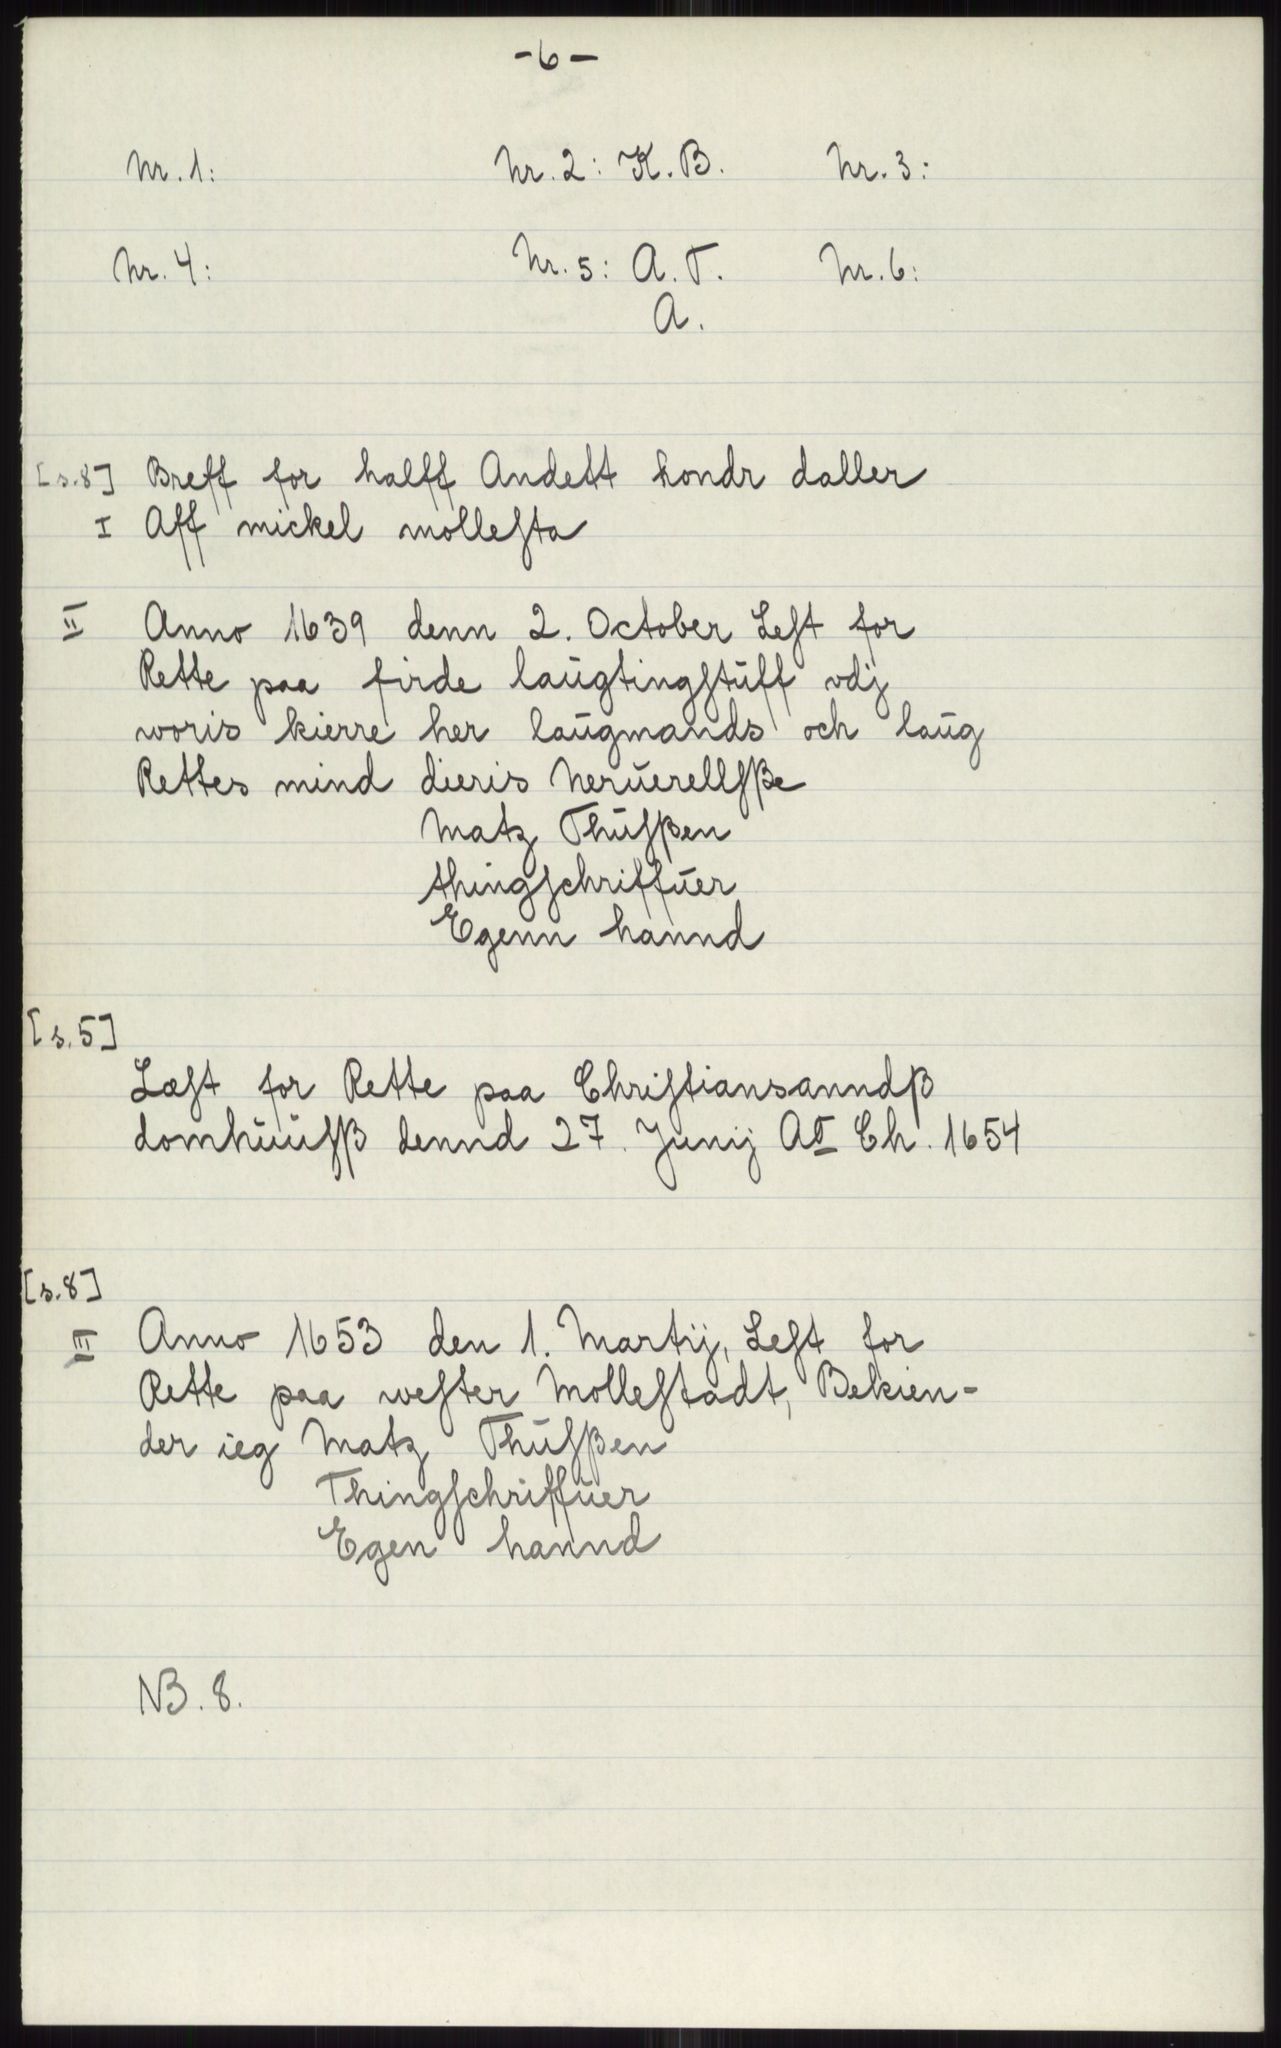 -6-
Nr. 1: Nr. 2: K. B. Nr. 3:
Nr. 4: Nr. 5: A. T. Nr. 6:
A.
[s.8] Breff for halff Andett hondr daller
I Aff mickel mollesta
II Anno 1639 denn 2. October Lest for
Rette paa firde laŭgtingstŭff vdj
woris kierre her laŭgmands och laŭg
Rettes mind dieris Nerŭerellsße
Matz Thŭsßen
thingschriffŭer
Egenn hannd
[s.5]
Læst for Rette paa Christiansanndß
domhŭŭsß dennd 27. Junij Ao Ch. 1654
[s.8]
III Anno 1653 den 1. Martij, Lest for
Rette paa wester Mollestadt, Bekien-
der ieg Matz Thŭsßen
Thingschriffŭer
Egen hannd
NB. 8.